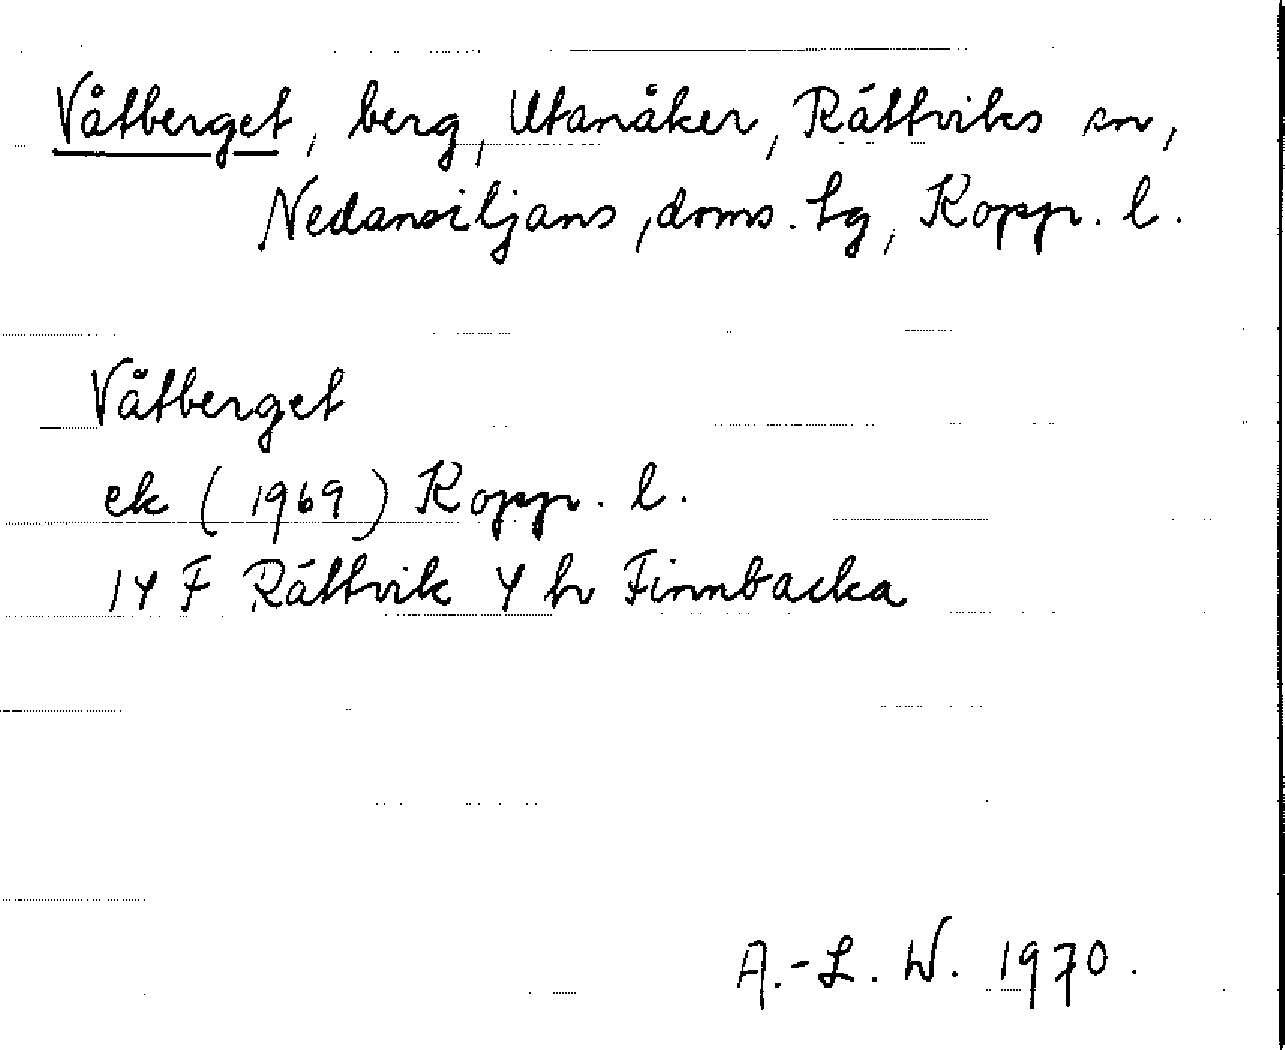 Våtberget, berg, Utanåker, Rättviks sn,
Nedansiljans, doms. tg, Kopp. l.
Våtberget
ek (1969) Kopp. l.
14 F Rättvik 4 h Finnbacka
A.-L. W. 1970.